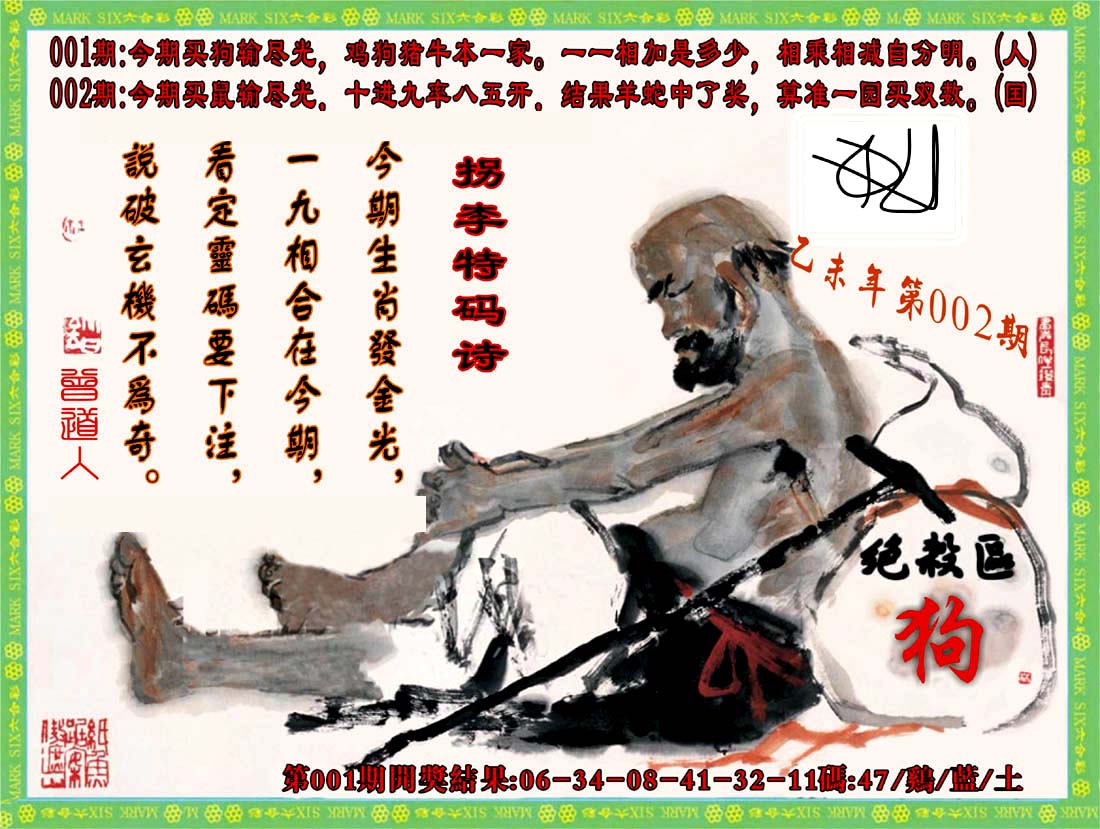 MARK SIX六合彩
001期:今期买狗输尽光，鸡狗猪牛本一家。一一相加是多少，相乘相减自分明。(人)
002期:今期买鼠输尽光．十进九率八五开．结果羊蛇中了奖，算准一园买双数。(国)
拐李特码诗
今期生肖發金光，
一九相合在今期，
看定靈碼要下注，
說破玄機不爲奇。
曾道人
乙未年第002期
绝殺區
狗
第001期開獎結果:06-34-08-41-32-11碼:47/鷄/藍/土